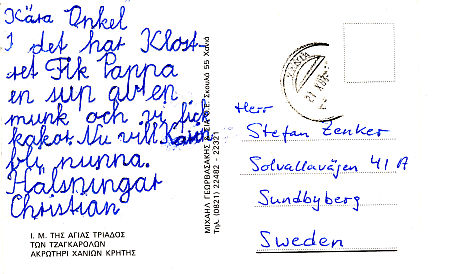 Kära Onkel
I det här Klost-
ret Fik Pappa
en sup av en
munk och vi fick
kakor. Nu vill Karin
bli nunna.
Hälsningar
Christian
Ι. Μ. ΤΗΣ ΑΓΙΑΣ ΤΡΙΑΔΟΣ
ΤΩΝ ΤΖΑΓΚΑΡΟΛΩΝ
ΑΚΡΩΤΗΡΙ ΧΑΝΙΩΝ ΚΡΗΤΗΣ
ΜΙΧΑΗΛ ΓΕΩΡΒΑΣΑΚΗΣ Σκουλά 55 Χανιά
Τηλ. (0821) 22482 - 22321
Herr
Stefan Zenker
Solvallaväjen 41 A
Sundbyberg
Sweden